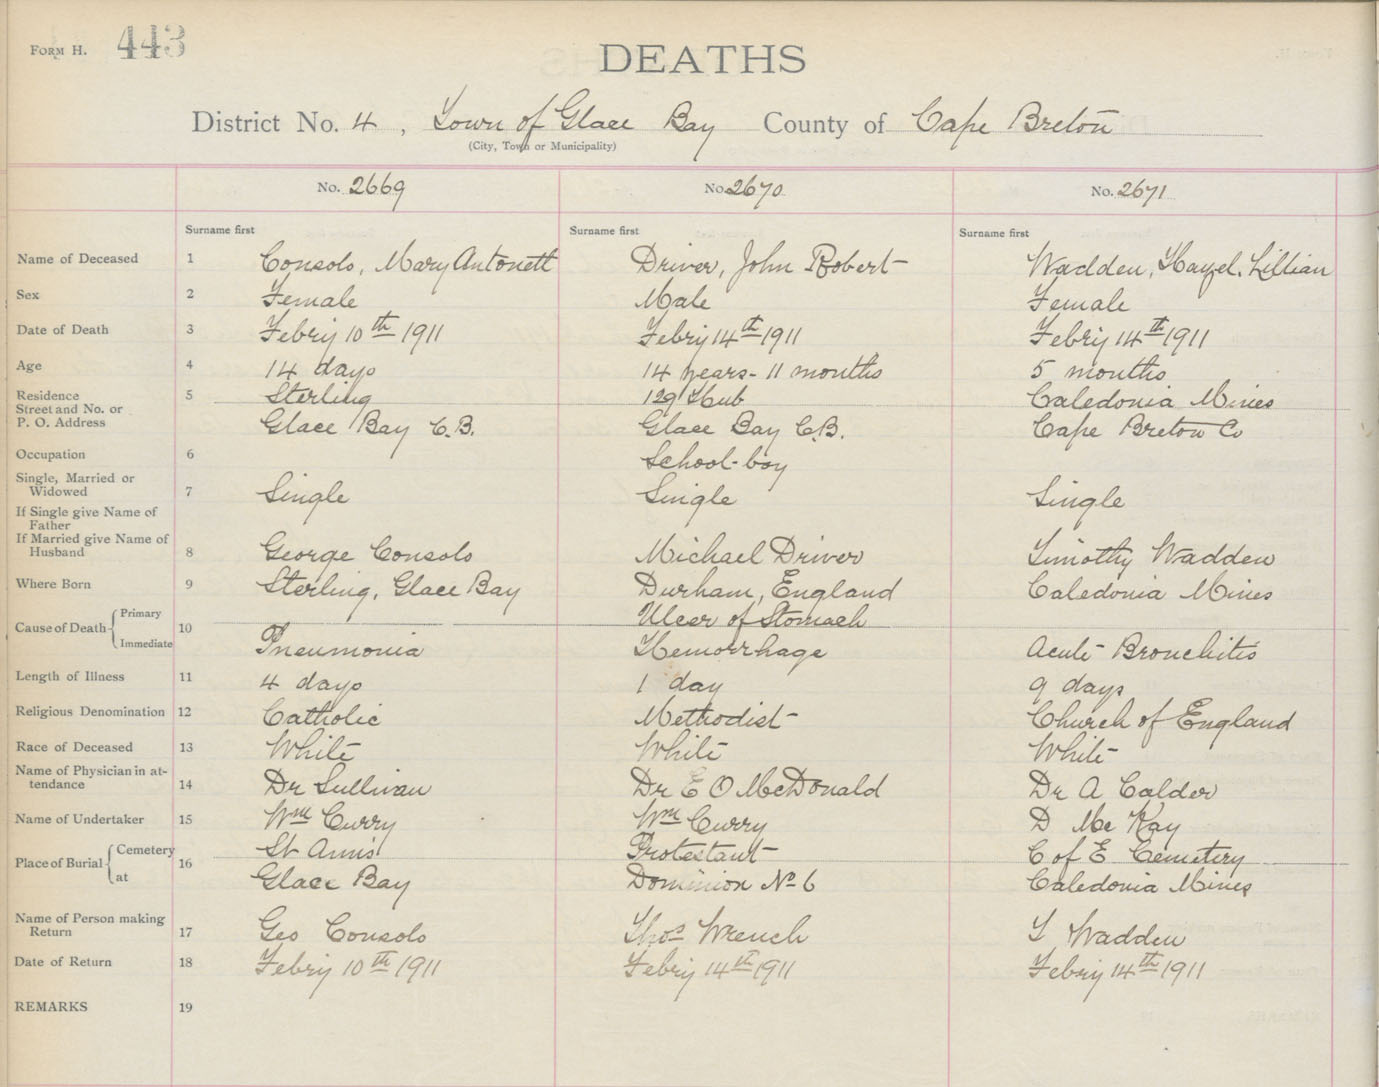 FORM H. 443
DEATHS
District No. 4, Town of Glace Bay County of Cape Breton
(City, Town or Municipality)
No. 2669 No. 2670 No. 2671
Surname first Surname first Surname first
Name of Deceased 1 Consolo, Mary Antonett Driver, John Robert Wadden, Hazel. Lillian
Sex 2 Female Male Female
Date of Death 3 Febry 10th 1911 Febry 14th 1911 Febry 14th 1911
Age 4 14 days 14 years - 11 months 5 months
Residence 5 Sterling 129 Hub Caledonia Mines
Street and No. or
P. O. Address Glace Bay C.B. Glace Bay C.B. Cape Breton Co
Occupation 6 School-boy
Single, Married or
Widowed 7 Single Single Single
If Single give Name of
Father
If Married give Name of
Husband 8 George Consolo Michael Driver Timothy Wadden
Where Born 9 Sterling, Glace Bay Durham, England Caledonia Mines
Cause of Death 10 Primary Ulcer of Stomach
Immediate Pneumonia Hemorrhage Acute Bronchitis
Length of Illness 11 4 days 1 day 9 days
Religious Denomination 12 Catholic Methodist Church of England
Race of Deceased 13 White White White
Name of Physician in at-
tendance 14 Dr Sullivan Dr E O McDonald Dr A Calder
Name of Undertaker 15 Wm Curry Wm Curry D McKay
Place of Burial 16 Cemetery St Anns Protestant C of E Cemetery
at Glace Bay Dominion No 6 Caledonia Mines
Name of Person making
Return 17 Geo Consolo Thos Wrench T Wadden
Date of Return 18 Febry 10th 1911 Febry 14th 1911 Febry 14th 1911
REMARKS 19